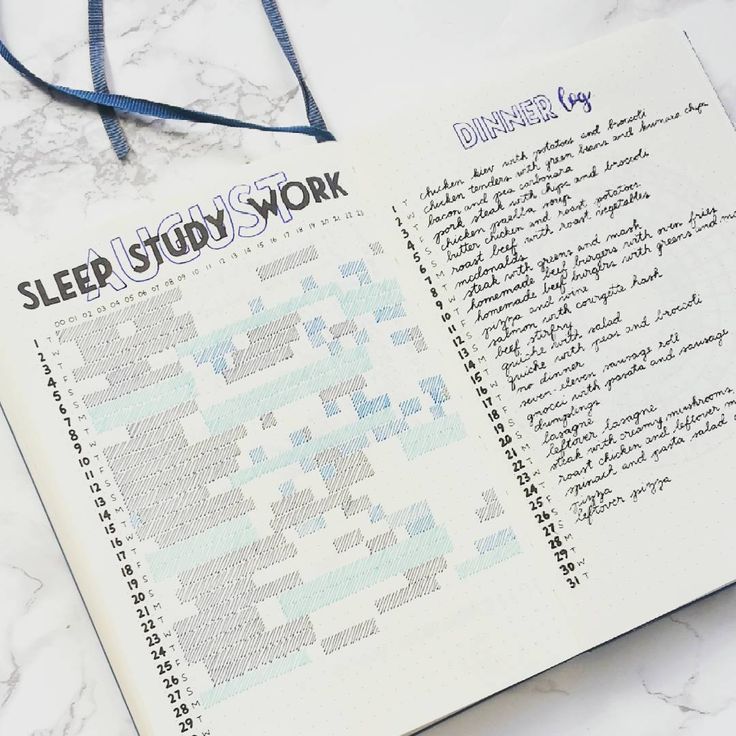 SLEEP STUDY WORK
AUGUST
00 01 02 03 04 05 06 07 08 09 10 11 12 13 14 15 16 17 18 19 20 21 22 23
1 T
2 W
3 T
4 F
5 S
6 S
7 M
8 T
9 W
10 T
11 F
12 S
13 S
14 M
15 T
16 W
17 T
18 F
19 S
20 S
21 M
22 T
23 W
24 T
25 F
26 S
27 S
28 M
29 T
DINNER log
1 T chicken kiev with potatoes and brocoli
2 W chicken tenders with green beans and kumara chips
3 T bacon and pea carbonara
4 F pork steak with chips and broccoli
5 S chicken paella soup
6 S butter chicken and roast potatoes
7 M roast beef with roast vegetables
8 T mcdonalds
9 W steak with greens and mash
10 T homemade beef burgers with oven fries
11 F homemade beef burgers with greens and
12 S pizza and wine
13 S salmon with courgette hash
14 M beef stirfry
15 T quiche with salad
16 W quiche with peas and broccoli
17 T no dinner
18 F seven eleven sausage roll
19 S gnocci with passata and sausage
20 S dumplings
21 M lasagne
22 T leftover lasagne
23 W steak with creamy mushrooms
24 T roast chicken and leftover
25 F spinach and pasta salad
26 S pizza
27 S leftover pizza
28 M
29 T
30 W
31 T